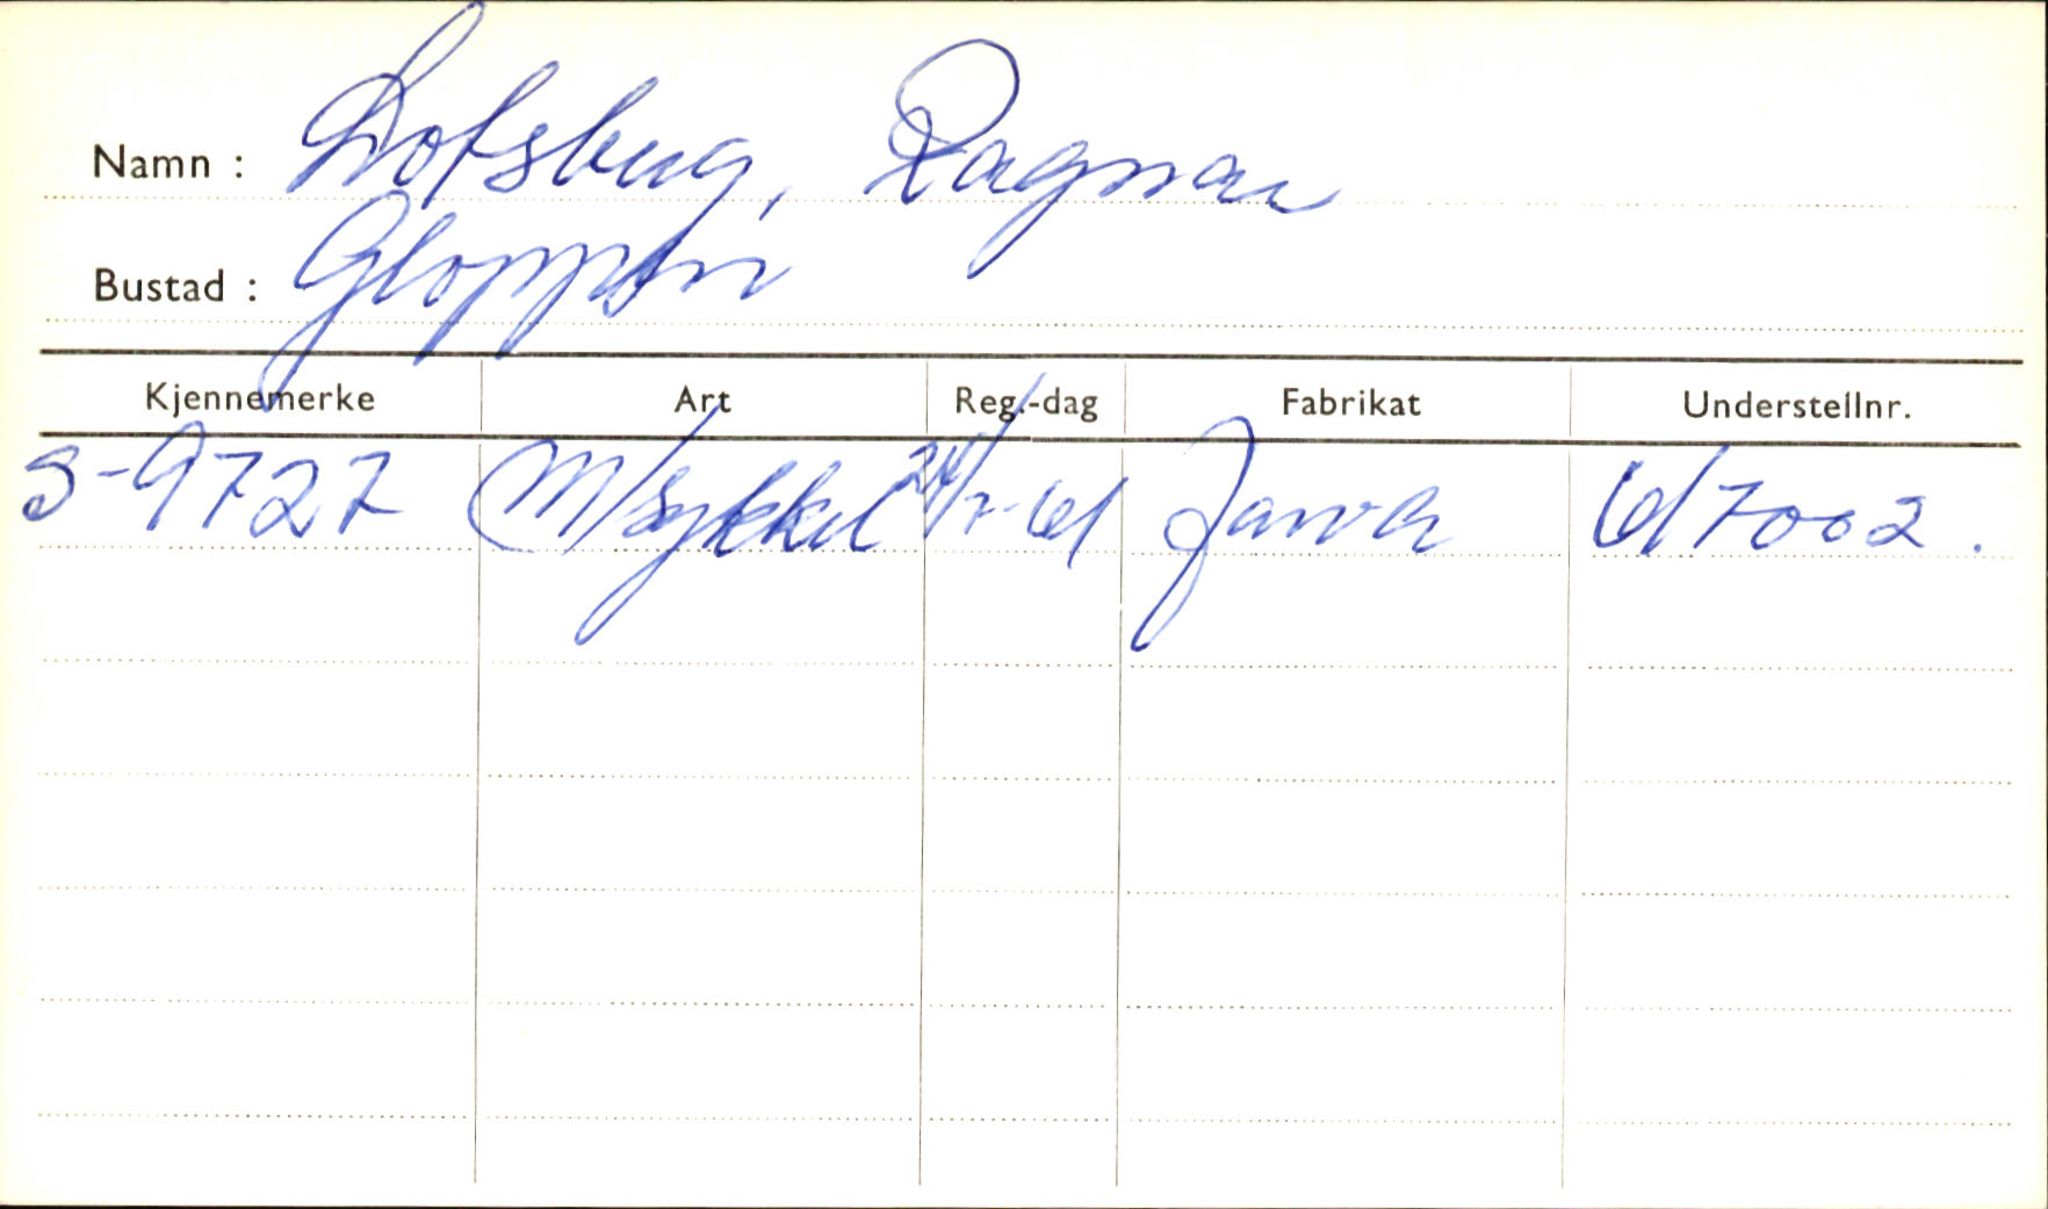 Namn : Lofsberg, Ragnar
Bustad : Gloppen
Kjennemerke Art Reg.-dag Fabrikat Understellnr.
S-9727 M/sykkel 24/7-61 Jawa 617002.